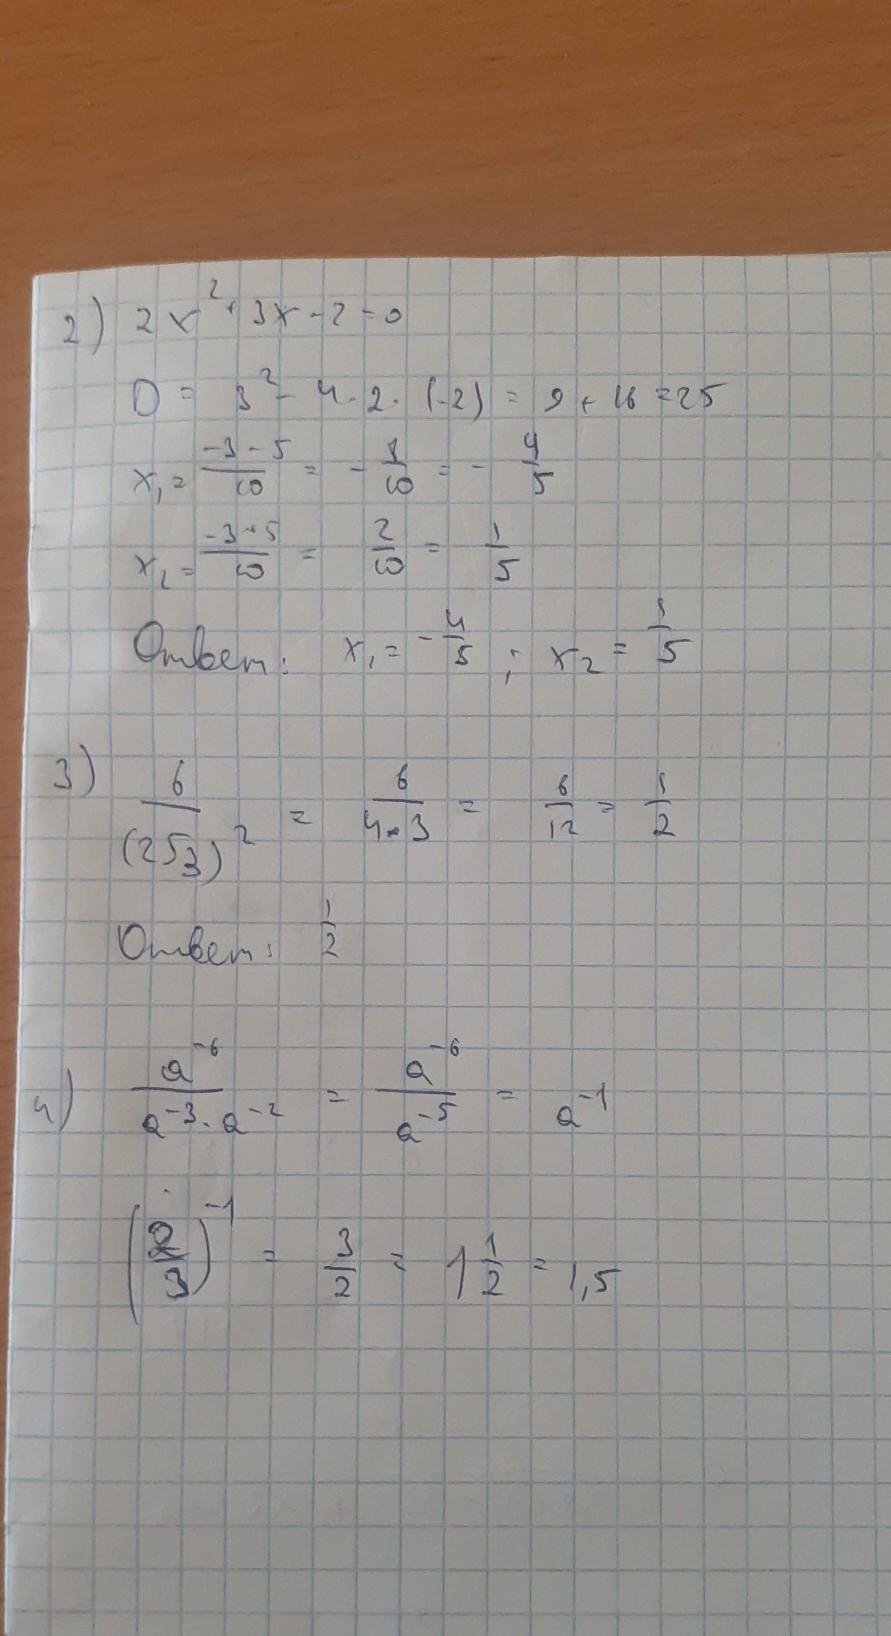 2) 2x² + 3x - 2 = 0
D = 3² - 4 · 2 · (-2) = 9 + 16 = 25
x₁ = (-3 - 5)/10 = - 8/10 = - 4/5
x₂ = (-3 + 5)/10 = 2/10 = 1/5
Ответ: x₁ = - 4/5 ; x₂ = 1/5
3) 6/(2√3)² = 6/(4·3) = 6/12 = 1/2
Ответ: 1/2
4) a⁻⁶/(a⁻³ · a⁻²) = a⁻⁶/a⁻⁵ = a⁻¹
(2/3)⁻¹ = 3/2 = 1 1/2 = 1,5